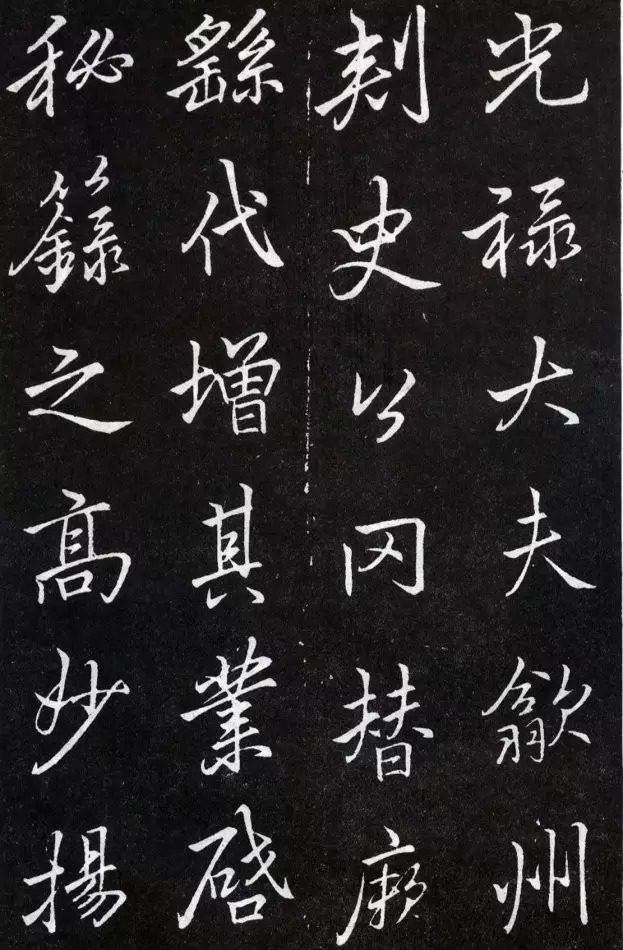 光禄大夫歙州
刺史公冈替厥
繇代增其業啓
秘籙之高妙揚